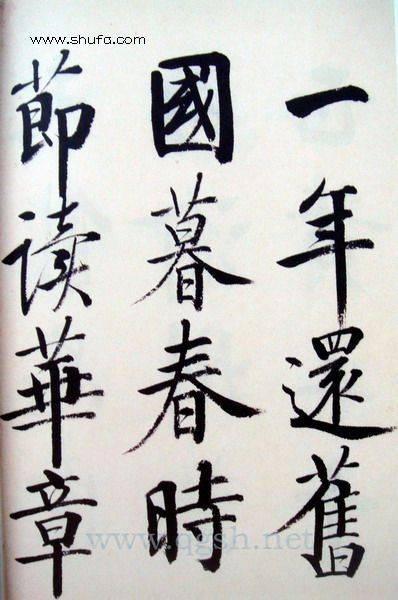 www.shufa.com
一年還舊
國暮春時
節读華章
www.qgsh.net